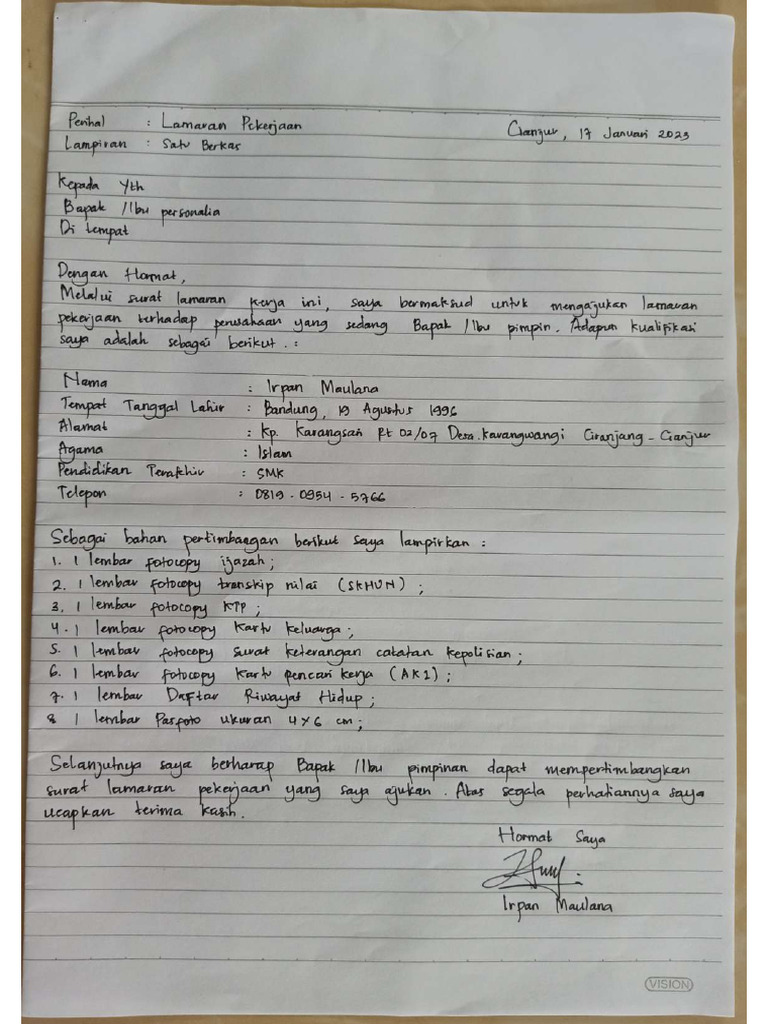 Perihal : Lamaran Pekerjaan
Cianjur, 17 Januari 2023
Lampiran : Satu Berkas
Kepada Yth
Bapak /Ibu personalia
Di tempat
Dengan Hormat,
Melalui surat lamaran kerja ini, saya bermaksud untuk mengajukan lamaran
pekerjaan terhadap perusahaan yang sedang Bapak /Ibu pimpin. Adapun kualifikasi
saya adalah sebagai berikut . :
Nama : Irpan Maulana
Tempat Tanggal Lahir : Bandung, 19 Agustus 1996
Alamat : Kp. Karangsari Rt 02/07 Desa. Karangwangi Ciranjang - Cianjur
Agama : Islam
Pendidikan Terakhir : SMK
Telepon : 0819 - 0954 - 5766
Sebagai bahan pertimbangan berikut saya lampirkan :
1. 1 lembar fotocopy ijazah ;
2. 1 lembar fotocopy transkip nilai (SKHUN) ;
3. 1 lembar fotocopy KTP ;
4. 1 lembar fotocopy Kartu keluarga ;
5. 1 lembar fotocopy surat keterangan catatan kepolisian ;
6. 1 lembar fotocopy Kartu pencari kerja (AK1) ;
7. 1 lembar Daftar Riwayat Hidup ;
8 1 lembar Pasfoto ukuran 4x6 cm ;
Selanjutnya saya berharap Bapak /Ibu pimpinan dapat mempertimbangkan
surat lamaran pekerjaan yang saya ajukan. Atas segala perhatiannya saya
ucapkan terima kasih.
Hormat Saya
Irpan Maulana
VISION